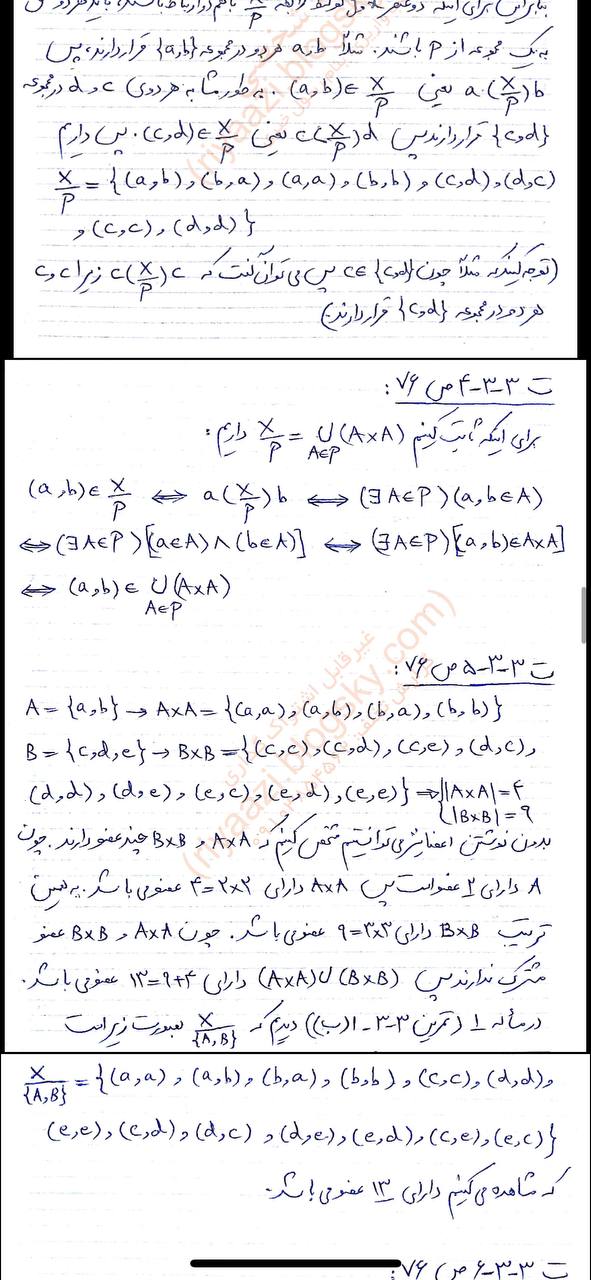 به یک مجموعه از P باشند. مثلاً a و b هر دو در مجموعه {a,b} قرار دارند، پس
a(X/P)b یعنی (a,b)∈X/P. به طور مشابه هر دوی c و d در مجموعه
{c,d} قرار دارند پس c(X/P)d یعنی (c,d)∈X/P. پس داریم
X/P = {(a,b), (b,a), (a,a), (b,b), (c,d), (d,c)
, (c,c), (d,d)}
(توجه کنید که مثلاً چون c∈{c,d} پس می توان گفت که c(X/P)c زیرا c و c
هر دو در مجموعه {c,d} قرار دارند.)
ت ۳-۳-۴ ص ۷۶:
برای اینکه ثابت کنیم X/P = ∪_{A∈P}(A×A) داریم:
(a,b)∈X/P ⟺ a(X/P)b ⟺ (∃A∈P)(a,b∈A)
⟺ (∃A∈P)[(a∈A)∧(b∈A)] ⟺ (∃A∈P)[(a,b)∈A×A]
⟺ (a,b)∈ ∪_{A∈P}(A×A)
ت ۳-۳-۵ ص ۷۶:
A = {a,b} → A×A = {(a,a), (a,b), (b,a), (b,b)}
B = {c,d,e} → B×B = {(c,c), (c,d), (c,e), (d,c),
(d,d), (d,e), (e,c), (e,d), (e,e)} ⇒ {|A×A|=۴
|B×B|=۹
بدون نوشتن اعضا نیز می توانستیم مشخص کنیم که A×A و B×B چند عضو دارند. چون
A دارای ۲ عضو است پس A×A دارای ۲×۲=۴ عضو می باشد. به همین
ترتیب B×B دارای ۳×۳=۹ عضو می باشد. چون A×A و B×B عضو
مشترک ندارند پس (A×A)∪(B×B) دارای ۴+۹=۱۳ عضو می باشد.
در مسأله ۱ (تمرین ۳-۳-۱(ب)) دیدیم که X/{A,B} بصورت زیر است
X/{A,B} = {(a,a), (a,b), (b,a), (b,b), (c,c), (d,d),
(e,e), (c,d), (d,c), (d,e), (e,d), (c,e), (e,c)}
که مشاهده می کنیم دارای ۱۳ عضو می باشد.
ت ۳-۳-۶ ص ۷۶: